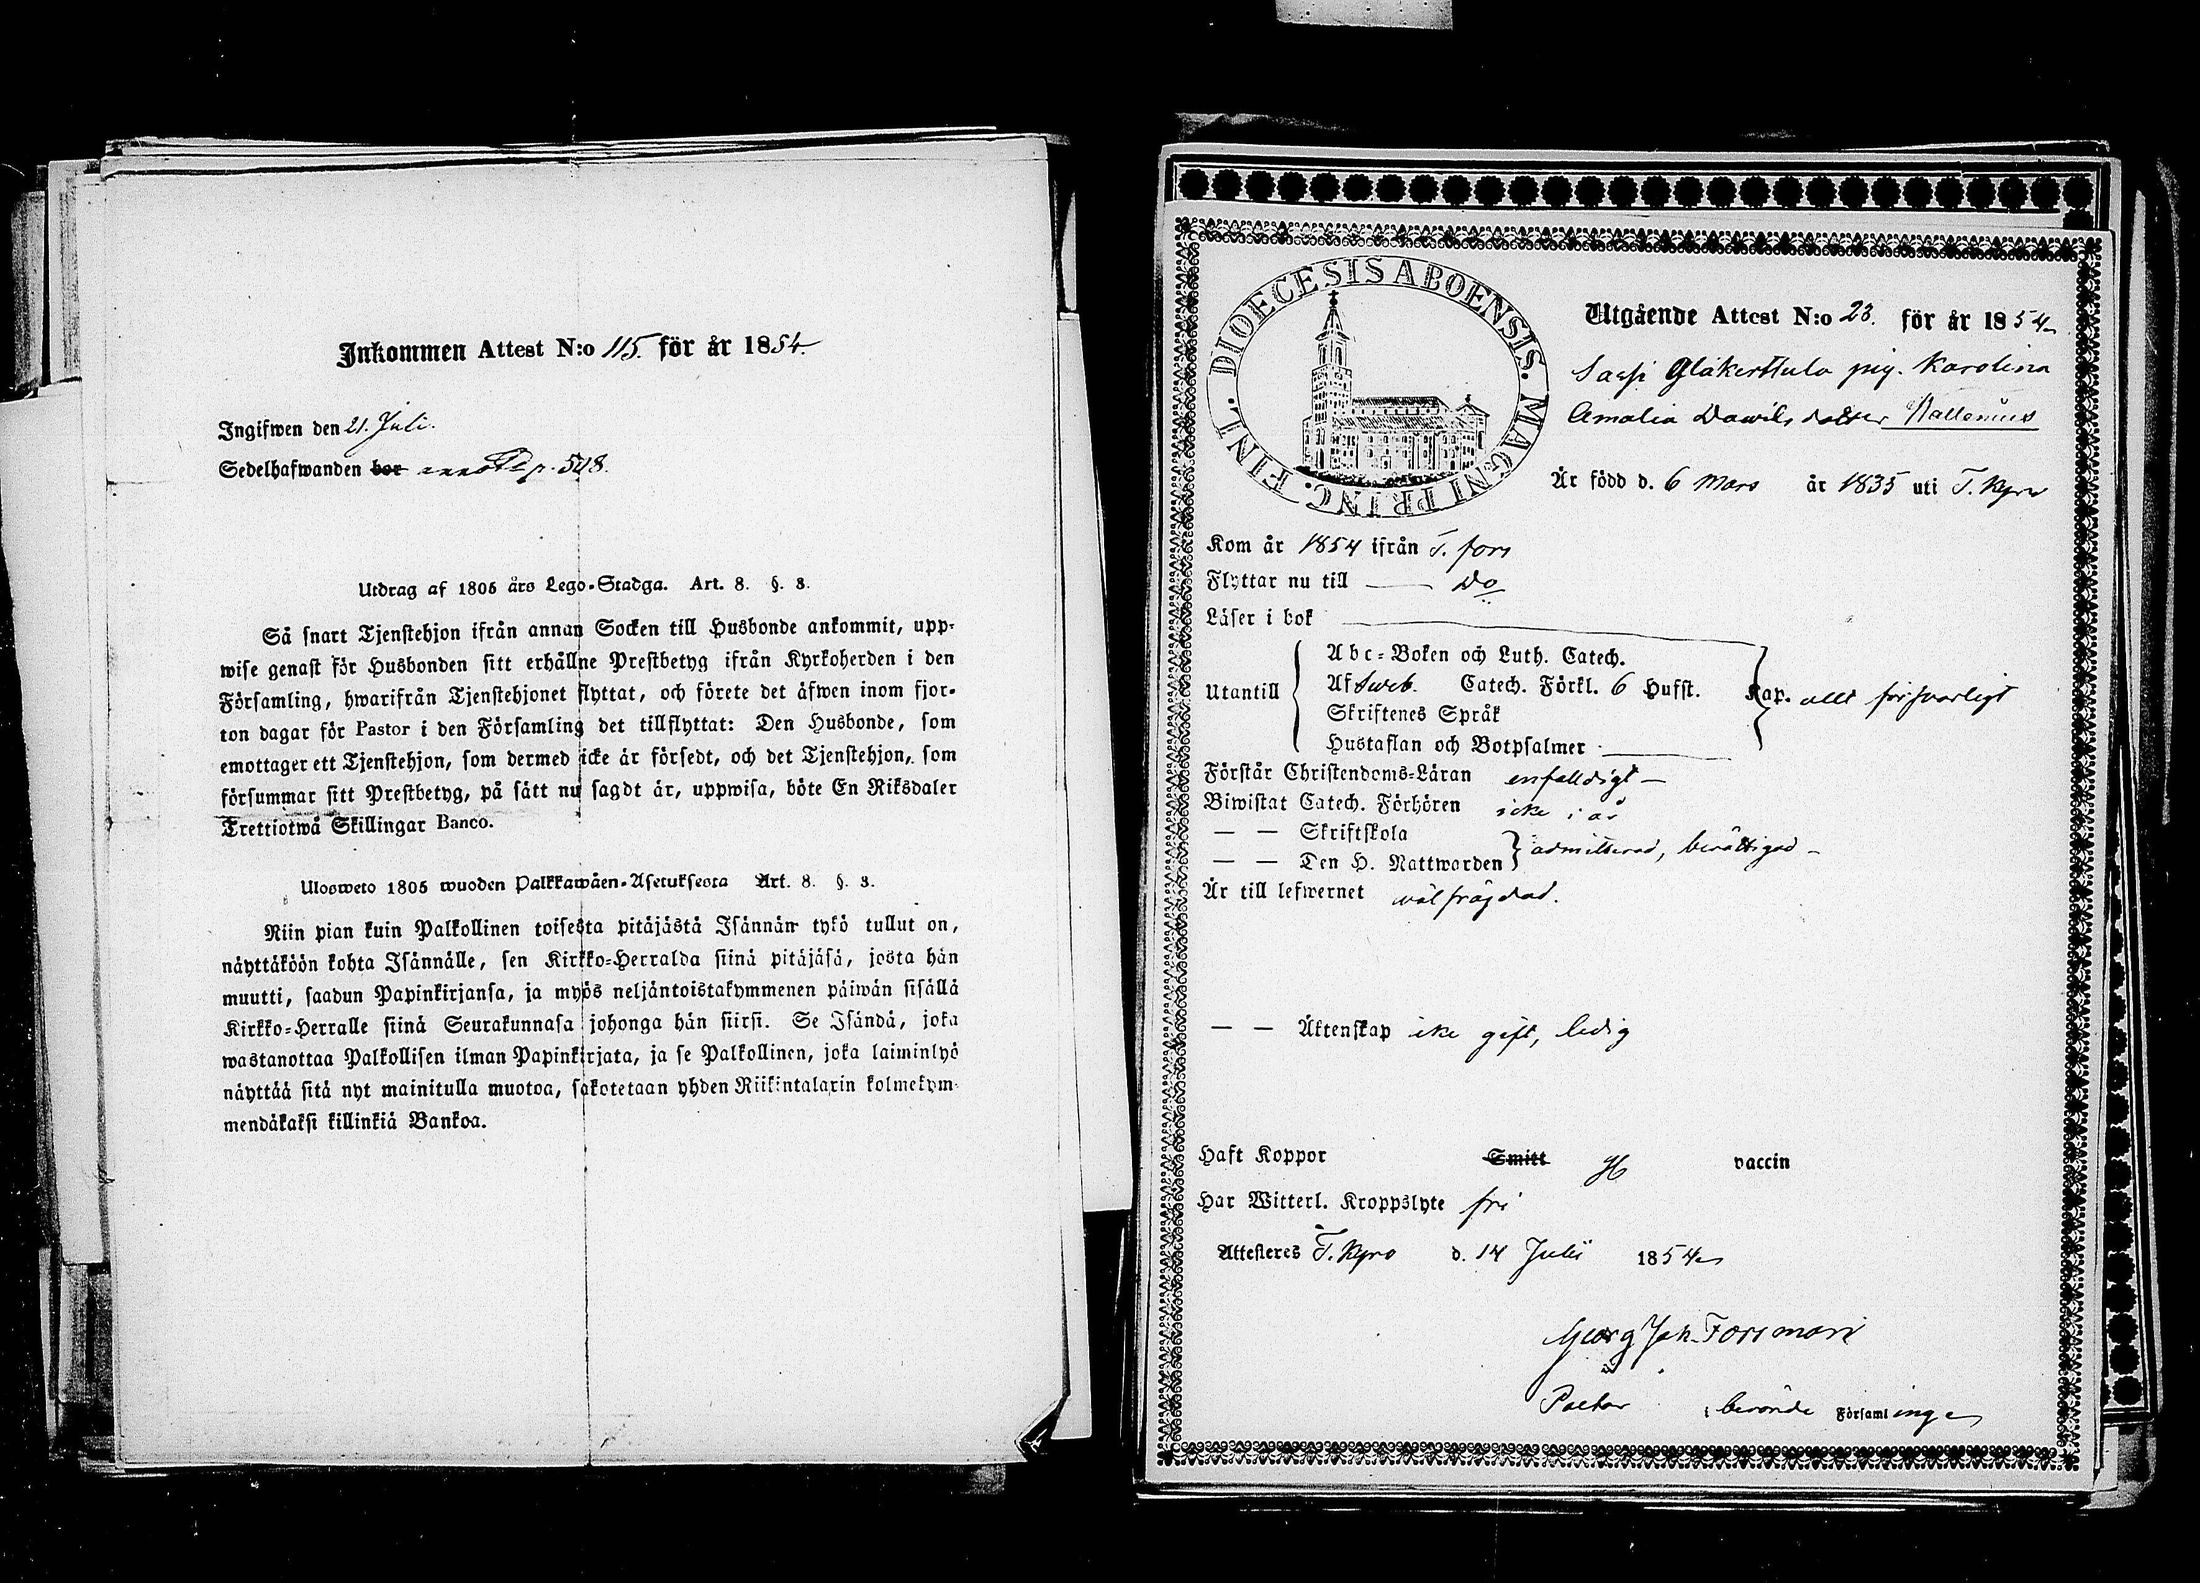 Inkommen Attest N:o 115. för år 1854.
Ingifwen den 21. Juli.
Sedelhafwanden bor p. 548.
Utdrag af 1805 års Lego-Stadga. Art. 8. §. 3.
Så snart Tjenstehjon ifrån annan Socken till Husbonde ankommit, upp-
wise genast för Husbonden sitt erhållne Prestbetyg ifrån Kyrkoherden i den
Församling, hwarifrån Tjenstehjonet flyttat, och förete det äfwen inom fjor-
ton dagar för Pastor i den Församling det tillflyttat: Den Husbonde, som
emottager ett Tjenstehjon, som dermed icke är försedt, och det Tjenstehjon, som
försummar sitt Prestbetyg, på sätt nu sagdt är, uppwisa, böte En Riksdaler
Trettiotwå Skillingar Banco.
Ulosweto 1805 wuoden Palkkawäen-Asetuksesta Art. 8. §. 3.
Niin pian kuin Palkollinen toisesta pitäjästä Isännän tykö tullut on,
näyttäköön kohta Isännälle, sen Kirkko-Herralda siinä pitäjäsä, josta hän
muutti, saadun Papinkirjansa, ja myös neljäntoistakymmenen päiwän sisällä
Kirkko-Herralle siinä Seurakunnasa johonga hän siirsi. Se Isändä, joka
wastanottaa Palkollisen ilman Papinkirjata, ja se Palkollinen, joka laiminlyö
näyttää sitä nyt mainitulla muotoa, sakotetaan yhden Riikintalarin kolmekym-
mendäkaksi killinkiä Bankoa.
DIOECESIS ABOENSIS. MAGNI PRINC. FINL.
Utgående Attest N:o 23. för år 1854
Sassi pig. Karolina
Amalia Dawidsdotter
Är född d. 6 Mars år 1835 uti T. Kyro
Kom år 1854 ifrån T. fors
Flyttar nu till — Do
Läser i bok
Utantill
Abc-Boken och Luth. Catech.
Af Sweb. Catech. Förkl. 6 Hufst. Kap. allt försvarligt
Skriftenes Språk
Hustaflan och Botpsalmer
Förstår Christendoms-Läran enfaldigt
Biwistat Catech. Förhören icke i år
— — Skriftskola
— — Den H. Nattwarden admitterad, berättigad
Är till lefwernet wälfrägdad.
— — Äktenskap ike gift, ledig
Haft Koppor Smitt vaccin
Har Witterl. Kroppslyte fri
Attesteres T. Kyro d. 14 Julii 1854
Georg Joh. Forsman
Pastor i berörde Församlinge